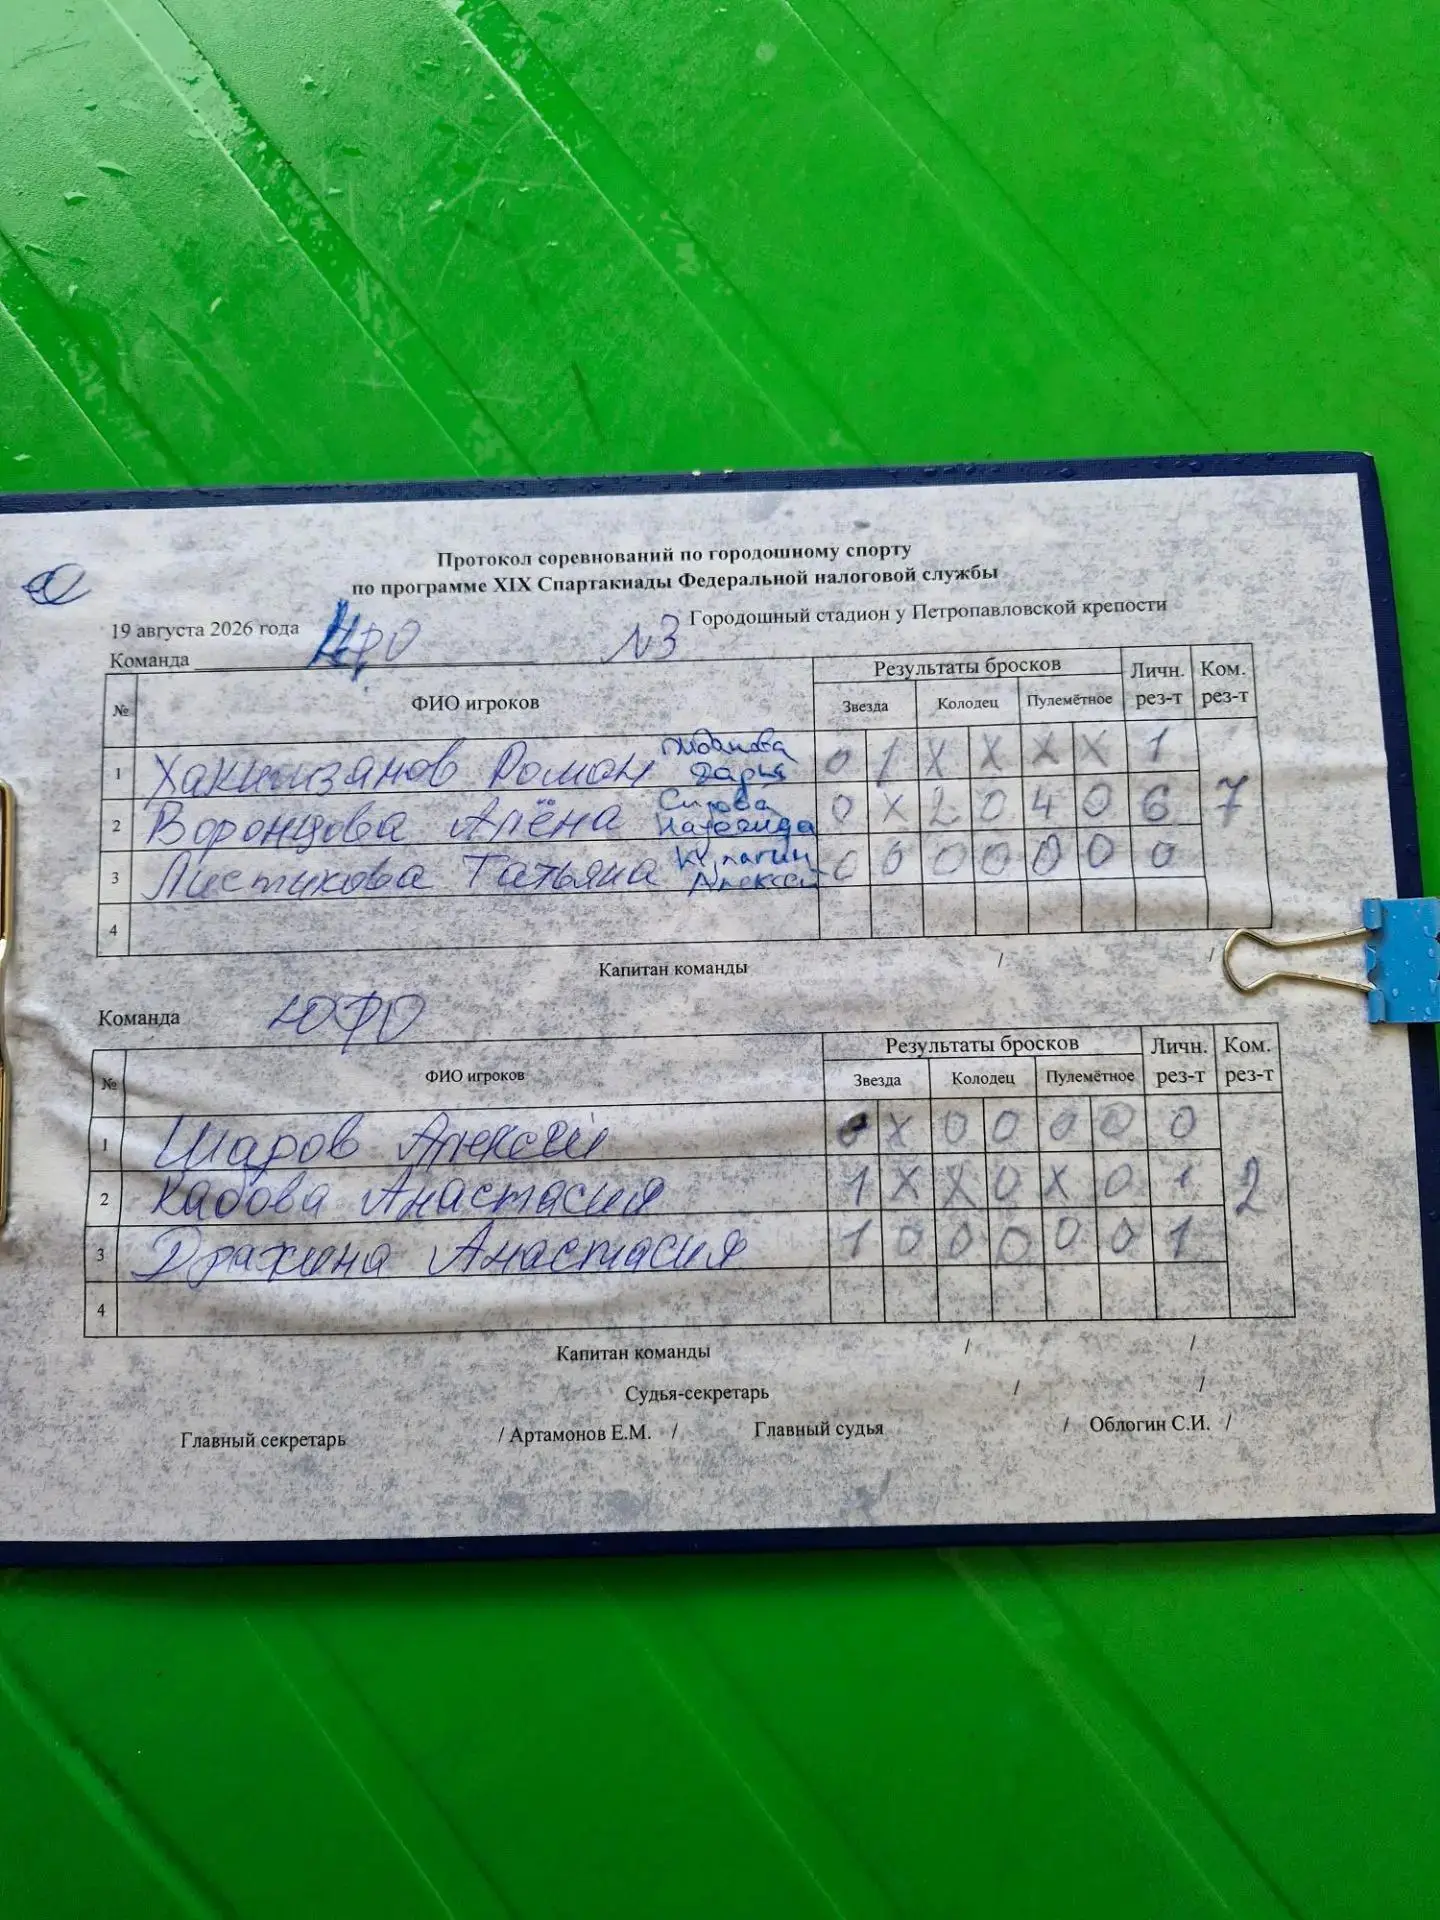 Протокол соревнований по городошному спорту
по программе XIX Спартакиады Федеральной налоговой службы
19 августа 2026 года Городошный стадион у Петропавловской крепости
Команда ЦФО №3
№ ФИО игроков Результаты бросков Личн. рез-т Ком. рез-т
Звезда Колодец Пулемётное
1 Роман Дарья 0 1 X X X X 1
2 Воронцова Алёна 0 X 2 0 4 0 6 7
3 Листикова Татьяна Кулагин Алексей 0 0 0 0 0 0 0
4
Капитан команды / /
Команда ЮФО
№ ФИО игроков Результаты бросков Личн. рез-т Ком. рез-т
Звезда Колодец Пулемётное
1 Шаров Алексей 0 X 0 0 0 0 0
2 Кабова Анастасия 1 X X 0 X 0 1 2
3 Анастасия 1 0 0 0 0 0 1
4
Капитан команды / /
Судья-секретарь / /
Главный секретарь / Артамонов Е.М. / Главный судья / Облогин С.И. /